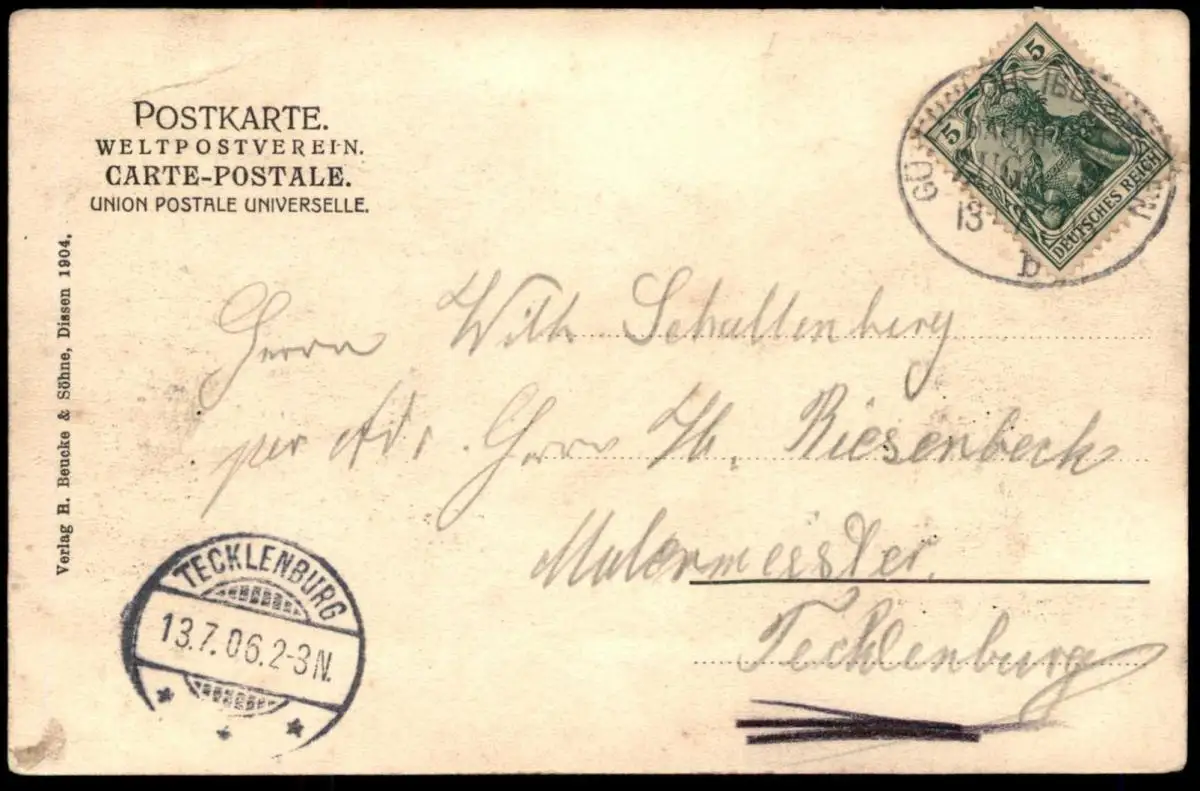 POSTKARTE.
WELTPOSTVEREIN.
CARTE-POSTALE.
UNION POSTALE UNIVERSELLE.
Verlag H. Beucke & Söhne, Dissen 1904.
5
5
DEUTSCHES REICH
13
b
Herrn Wilh Schallenberg
per Adr. Herr Th. Riesenbeck
Malermeister.
Tecklenburg
TECKLENBURG
13.7.06.2-3N.